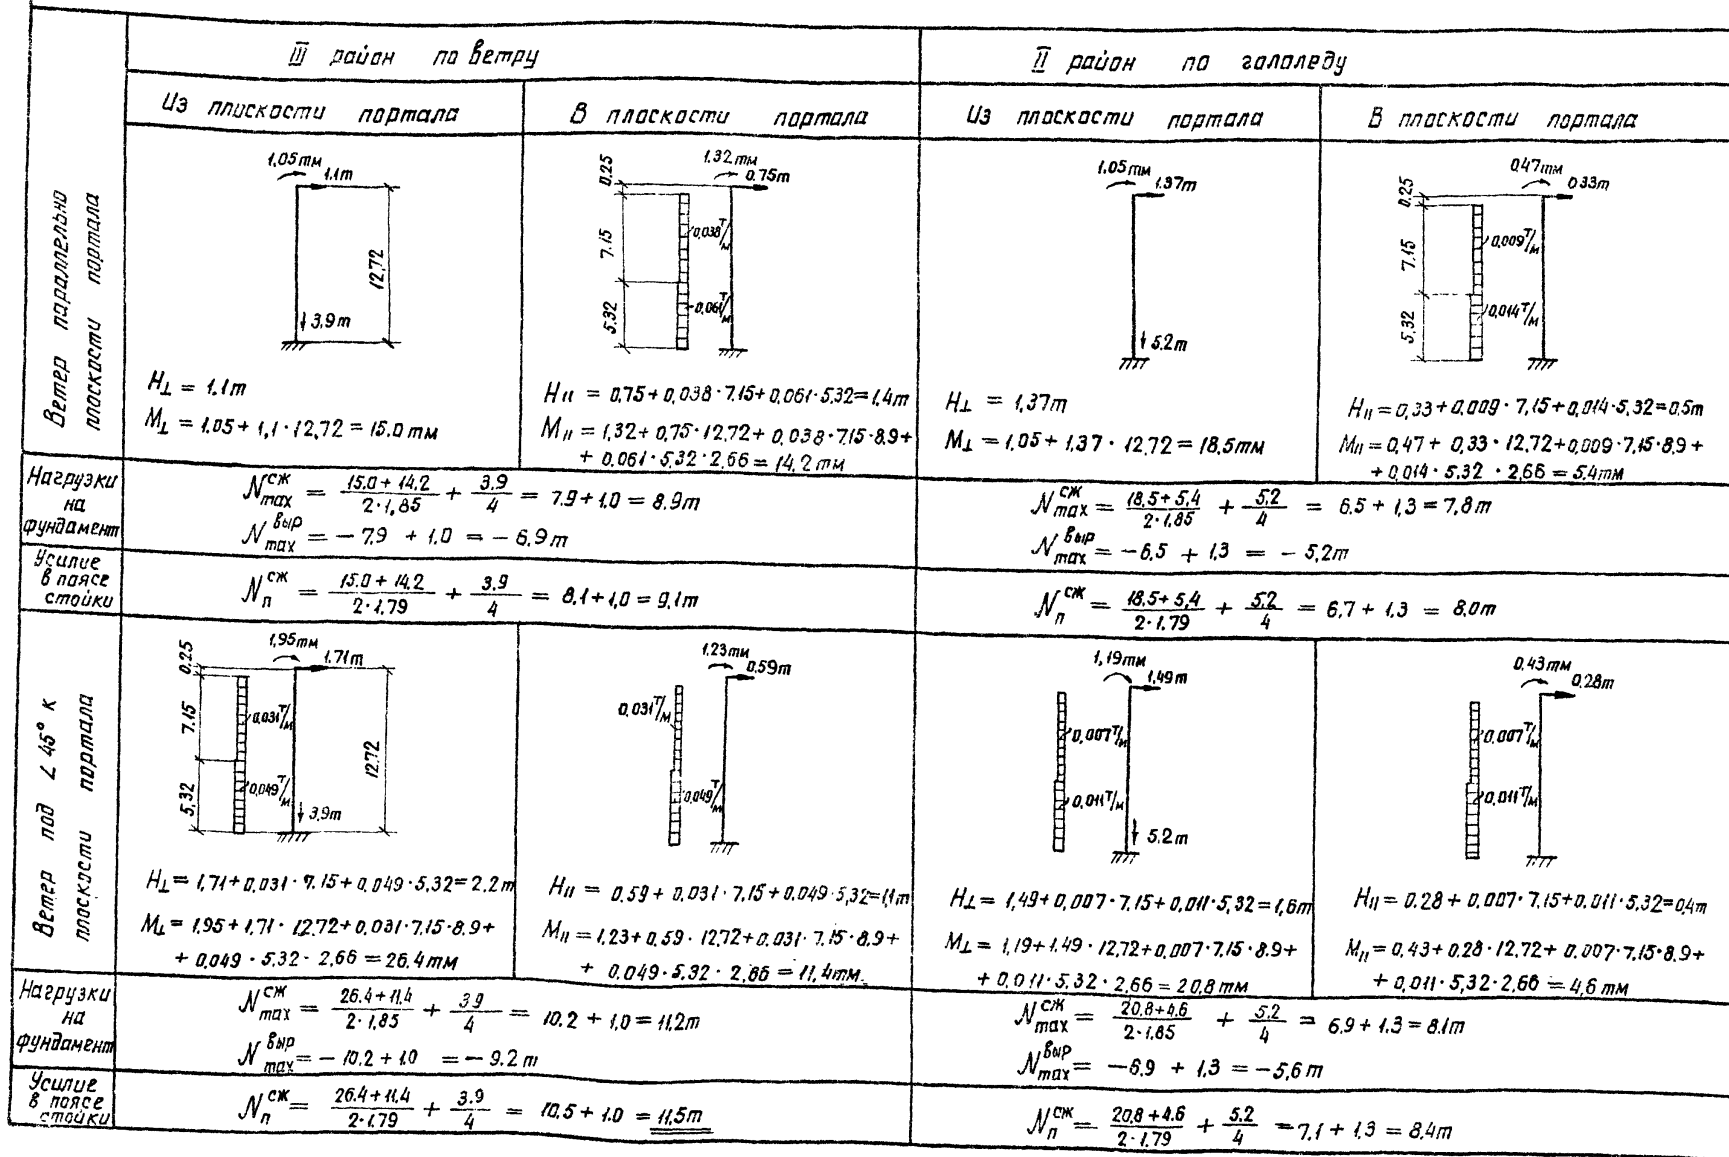 III район по ветру
II район по гололеду
Из плоскости портала
В плоскости портала
Из плоскости портала
В плоскости портала
Ветер параллельно
плоскости портала
1,05тм
1.1т
12,72
3.9т
H⊥ = 1.1т
M⊥ = 1.05 + 1,1 · 12,72 = 15.0 тм
1.32тм
0.75т
0.25
7.15
5.32
0,038 т/м
0,061 т/м
H|| = 0.75 + 0,038 · 7.15 + 0,061 · 5.32 = 1.4т
M|| = 1,32 + 0,75 · 12,72 + 0,038 · 7.15 · 8.9 +
+ 0.061 · 5,32 · 2,66 = 14,2 тм
1.05тм
1.37т
5.2т
H⊥ = 1,37т
M⊥ = 1,05 + 1.37 · 12.72 = 18,5тм
0,47тм
0.33т
0.25
7.15
5,32
0,009 т/м
0,014 т/м
H|| = 0,33 + 0,009 · 7,15 + 0,014 · 5.32 = 0.5т
M|| = 0,47 + 0,33 · 12,72 + 0,009 · 7,15 · 8,9 +
+ 0,014 · 5,32 · 2,66 = 5.4тм
Нагрузки
на
фундамент
N сж max = (15.0 + 14.2)/(2·1,85) + 3,9/4 = 7.9 + 1.0 = 8.9т
N выр max = - 7,9 + 1,0 = - 6.9т
N сж max = (18,5 + 5,4)/(2·1.85) + 5.2/4 = 6.5 + 1,3 = 7,8т
N выр max = - 6,5 + 1,3 = - 5,2т
Усилие
в поясе
стойки
N сж п = (15.0 + 14.2)/(2·1,79) + 3,9/4 = 8,1 + 1,0 = 9,1т
N сж п = (18,5 + 5,4)/(2·1,79) + 5,2/4 = 6,7 + 1.3 = 8,0т
Ветер под ∠ 45° к
плоскости портала
1,95тм
1.71т
0.25
7.15
5,32
0,031 т/м
0,049 т/м
12,72
3,9т
H⊥ = 1,71 + 0,031 · 7.15 + 0,049 · 5,32 = 2.2т
M⊥ = 1.95 + 1,71 · 12.72 + 0,031 · 7.15 · 8.9 +
+ 0,049 · 5,32 · 2,66 = 26.4тм
1.23тм
0.59т
0,031 т/м
0,049 т/м
H|| = 0.59 + 0.031 · 7,15 + 0.049 · 5,32 = 1,1т
M|| = 1,23 + 0,59 · 12,72 + 0.031 · 7,15 · 8,9 +
+ 0.049 · 5,32 · 2,66 = 11,4тм.
1,19тм
1,49т
0,007 т/м
0,011 т/м
5.2т
H⊥ = 1,49 + 0,007 · 7,15 + 0,011 · 5,32 = 1,6т
M⊥ = 1,19 + 1.49 · 12,72 + 0,007 · 7,15 · 8,9 +
+ 0,011 · 5,32 · 2,66 = 20,8 тм
0,43тм
0,28т
0,007 т/м
0,011 т/м
H|| = 0.28 + 0,007 · 7,15 + 0.011 · 5.32 = 0,4т
M|| = 0,43 + 0.28 · 12,72 + 0.007 · 7.15 · 8,9 +
+ 0,011 · 5,32 · 2,66 = 4,6 тм
Нагрузки
на
фундамент
N сж max = (26.4 + 11.4)/(2·1,85) + 3.9/4 = 10.2 + 1,0 = 11,2т
N выр max = - 10.2 + 1.0 = - 9.2т
N сж max = (20,8 + 4,6)/(2·1.85) + 5,2/4 = 6.9 + 1.3 = 8.1т
N выр max = - 6.9 + 1,3 = - 5,6т
Усилие
в поясе
стойки
N сж п = (26.4 + 11.4)/(2·1.79) + 3.9/4 = 10.5 + 1.0 = 11,5т
N сж п = (20,8 + 4.6)/(2·1.79) + 5.2/4 = 7.1 + 1.3 = 8.4т